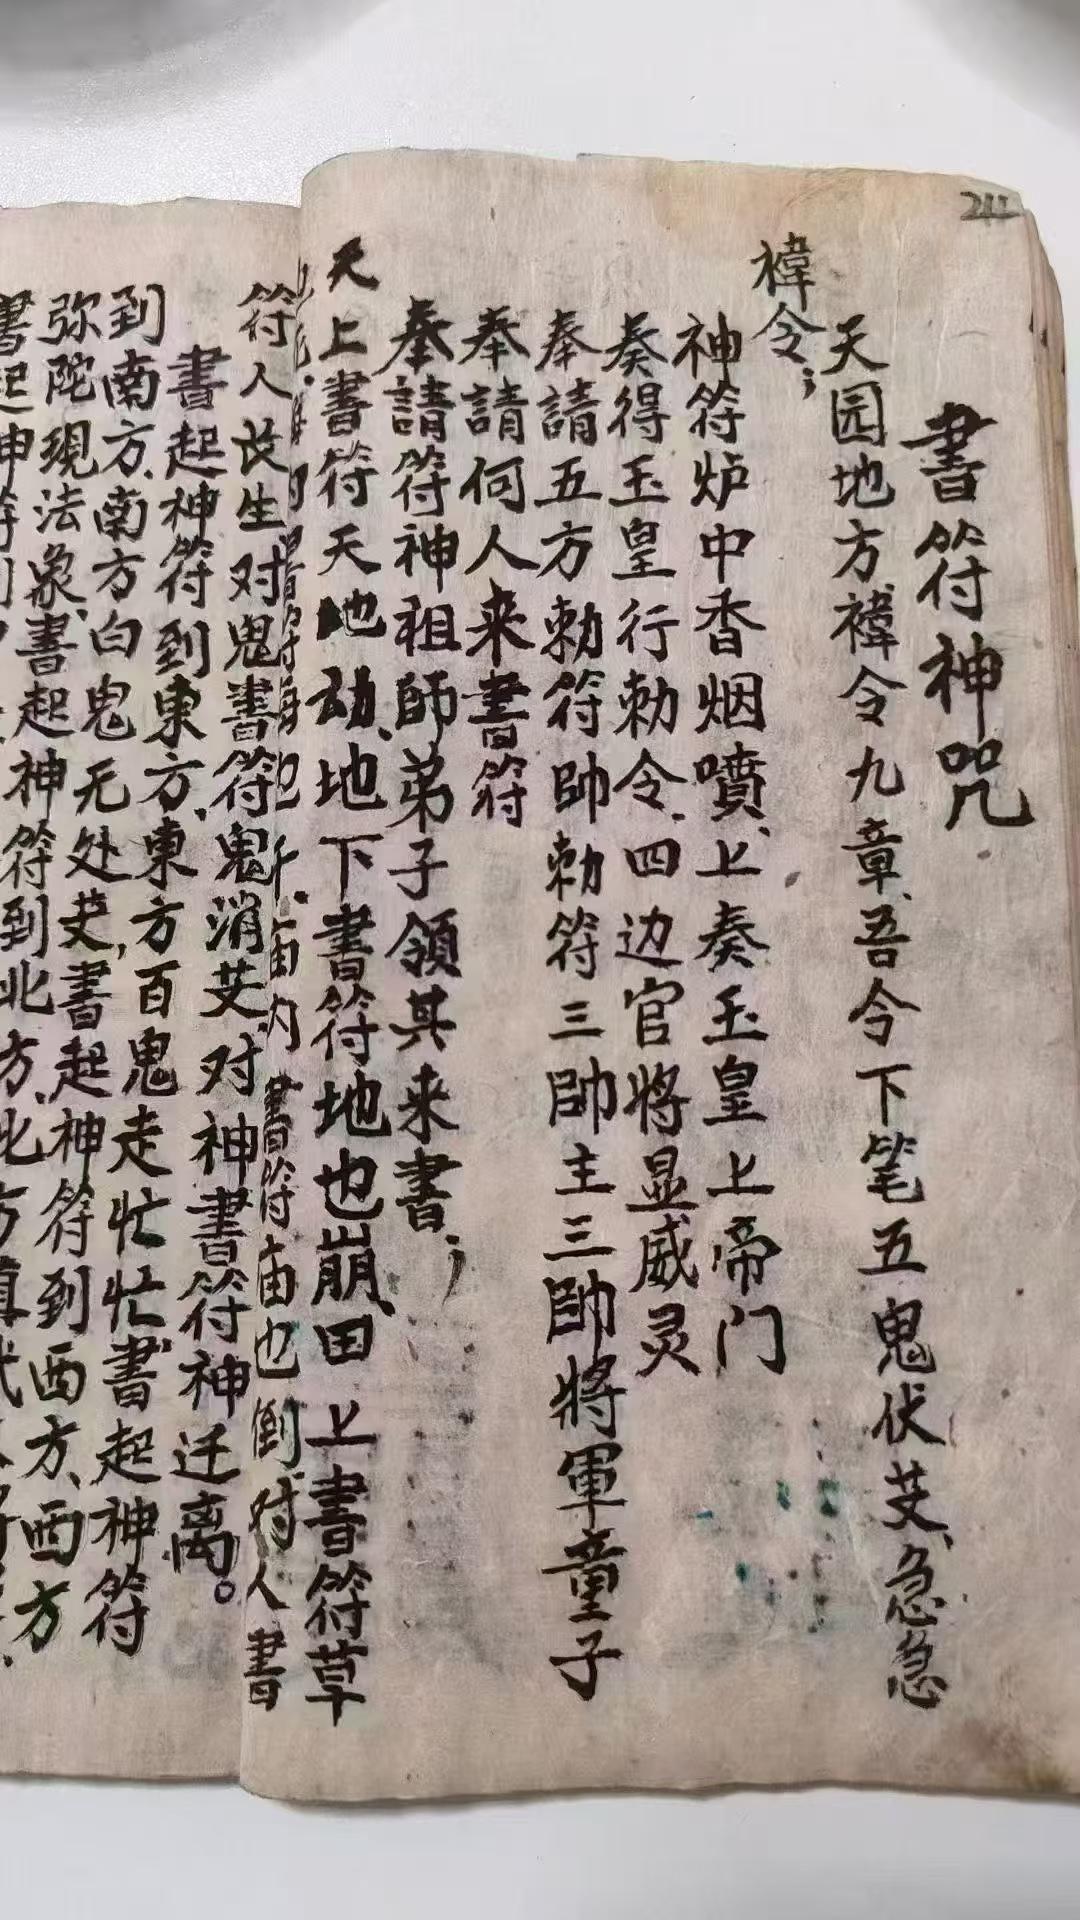 211
書符神咒
天园地方、禕令九章、吾今下笔五鬼伏芆、急急
禕令；
神符炉中香烟噴、上奏玉皇上帝门
奏得玉皇行勅令、四边官將显威灵
奉請五方勅符帥勅符三帥主三帥將軍童子
奉請何人来書符
奉請符神祖師弟子領其来書；
天上書符天地动、地下書符地也崩、田上書符草
庙内書符庙也倒、对人書
符人长生、对鬼書符鬼消芆、对神書符神迁离。
書起神符到東方、東方百鬼走忙忙、書起神符
到南方、南方白鬼无处芆，書起神符到西方、西方
弥陀現法象、書起神符到北方、北方
書起神符到